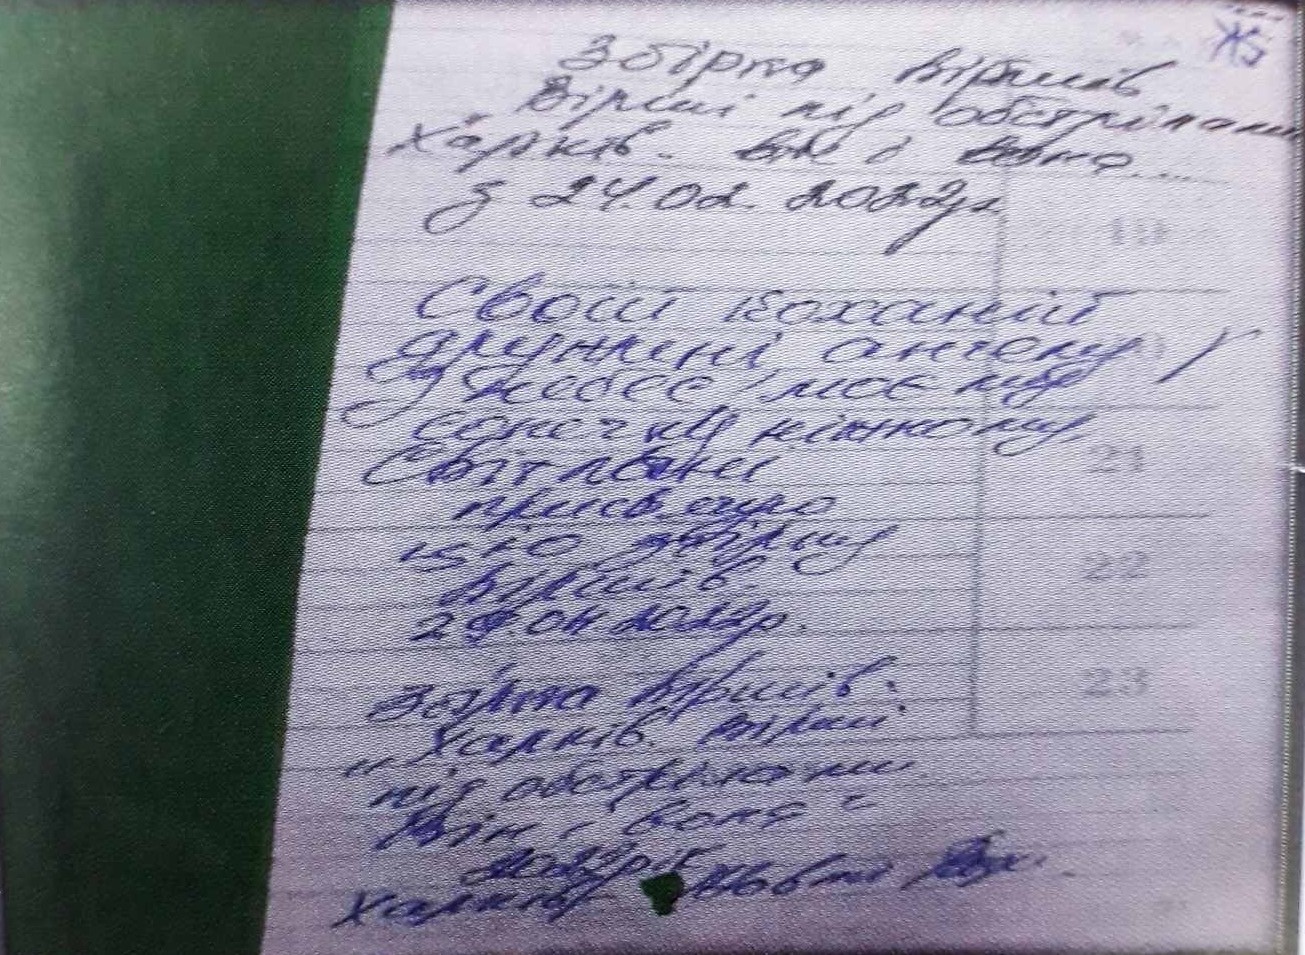 Ж5
Збірка віршів
Вірші під обстрілами
Харків. він і вона....
з 24.02.2022р.
19
Своїй коханій
дружині ангелу
з небес моєму
сонечку ніжному
Світлані
21
присвячую
цю збірку
22
віршів.
2022р.
Збірка віршів.
23
„Харків. Вірші
під обстрілами.
Він і вона"
2022рік
Харків